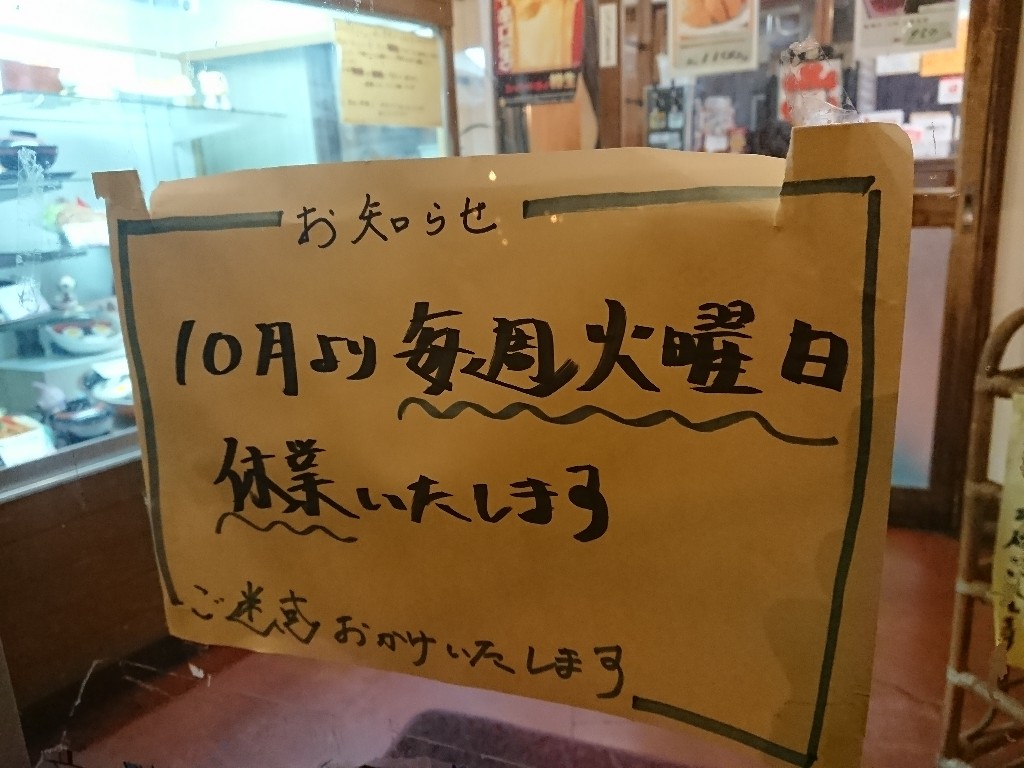 お知らせ
10月より毎週火曜日
休業いたします
ご迷惑おかけいたします